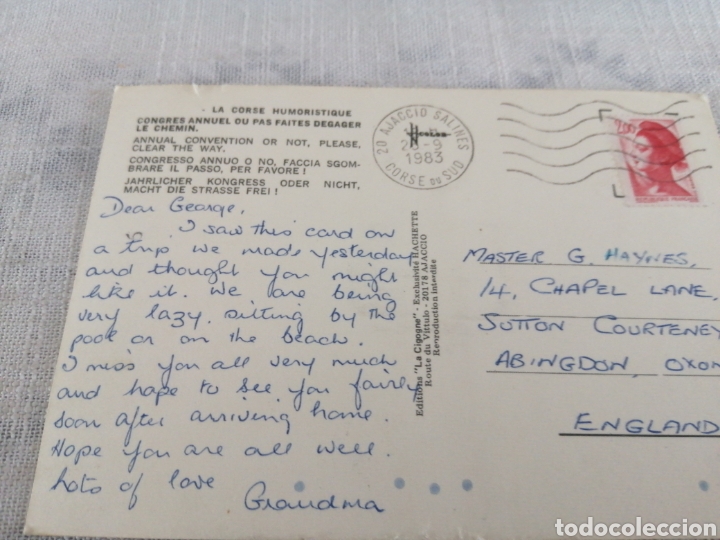 LA CORSE HUMORISTIQUE
CONGRES ANNUEL OU PAS FAITES DEGAGER
LE CHEMIN.
ANNUAL CONVENTION OR NOT, PLEASE,
CLEAR THE WAY.
CONGRESSO ANNUO O NO, FACCIA SGOM-
BRARE IL PASSO, PER FAVORE !
JAHRLICHER KONGRESS ODER NICHT,
MACHT DIE STRASSE FREI !
20 AJACCIO SALINES
-9
1983
CORSE DU SUD
2,00
Dear George,
I saw this card on
a trip we made yesterday
and thought you might
like it. We are being
very lazy, sitting by the
pool or on the beach.
I miss you all very much
and hope to see you fairly
soon after arriving home.
Hope you are all well.
Lots of love
Grandma
Editions "La Cigogne" - Exclusivité HACHETTE
Route du Vittulo - 20178 AJACCIO
Reproduction interdite
MASTER G. HAYNES,
14, CHAPEL LANE,
SUTTON COURTENEY
ABINGDON, OXON
ENGLAND
todocoleccion